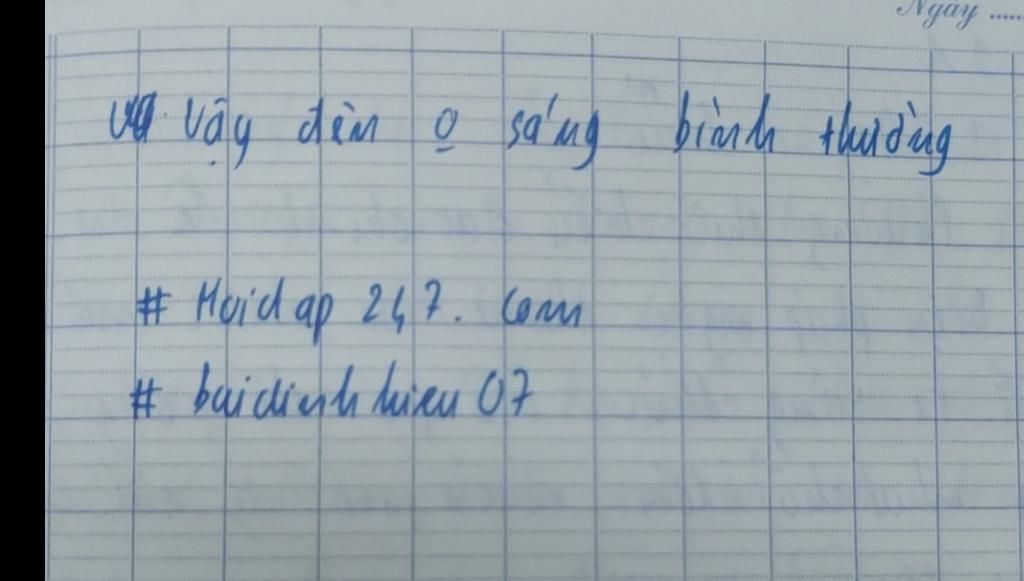 Ngày ......
Vậy đèn o sáng bình thường
# Hoidap 247. Com
# buidinhhieu 07